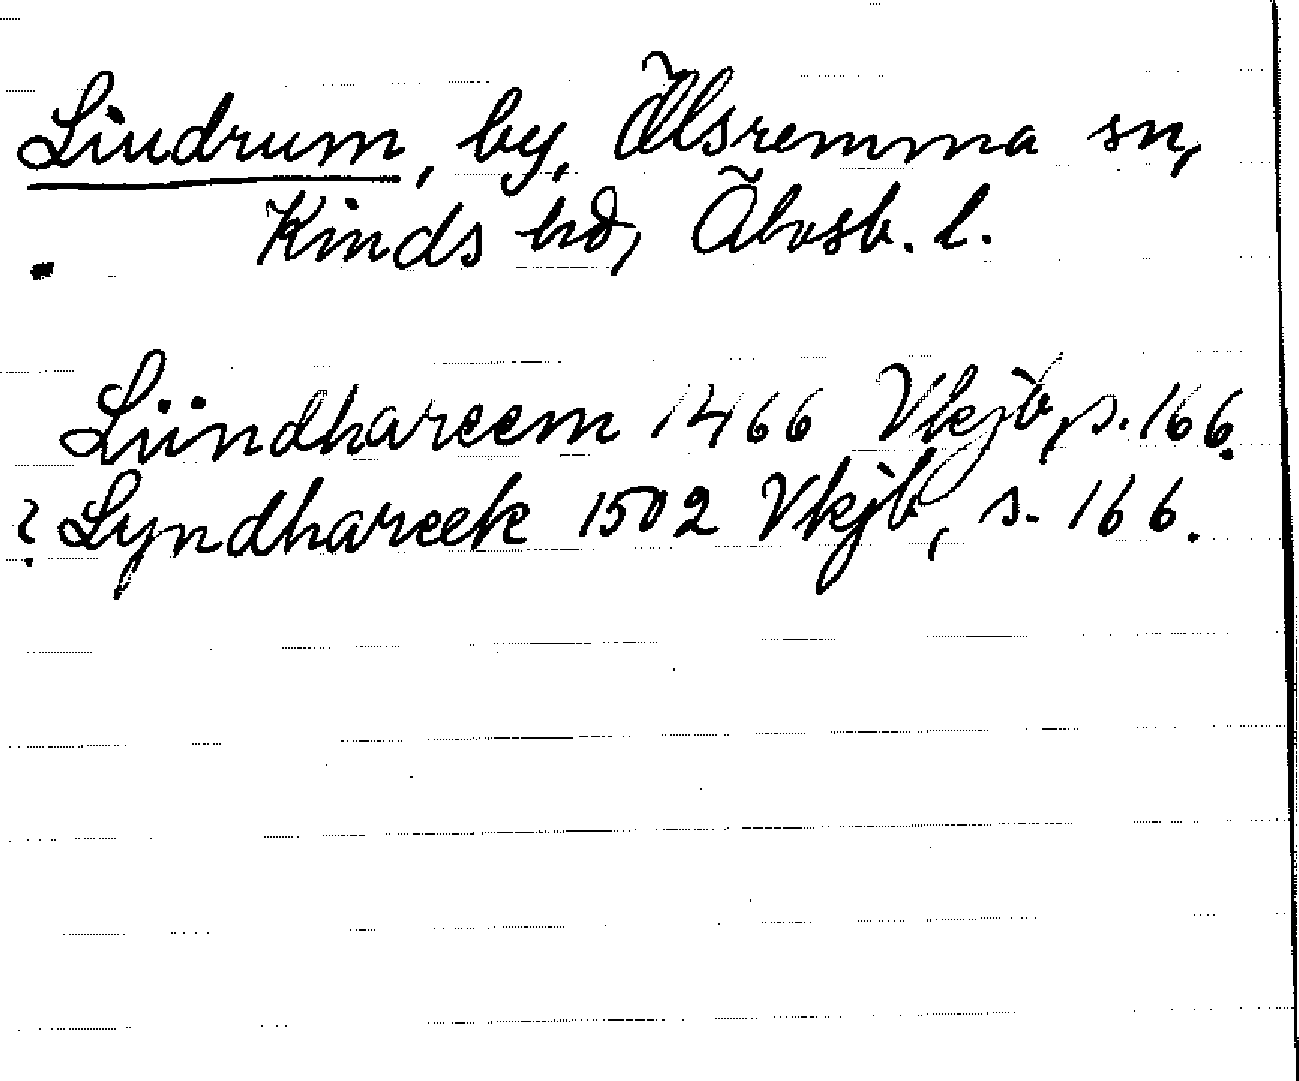 Lindrum, by, Ölsremma sn,
Kinds hd, Älvsb. l.
Liindhareem 1466 Vkjb, s. 166.
? Lyndhareek 1502 Vkjb, s. 166.